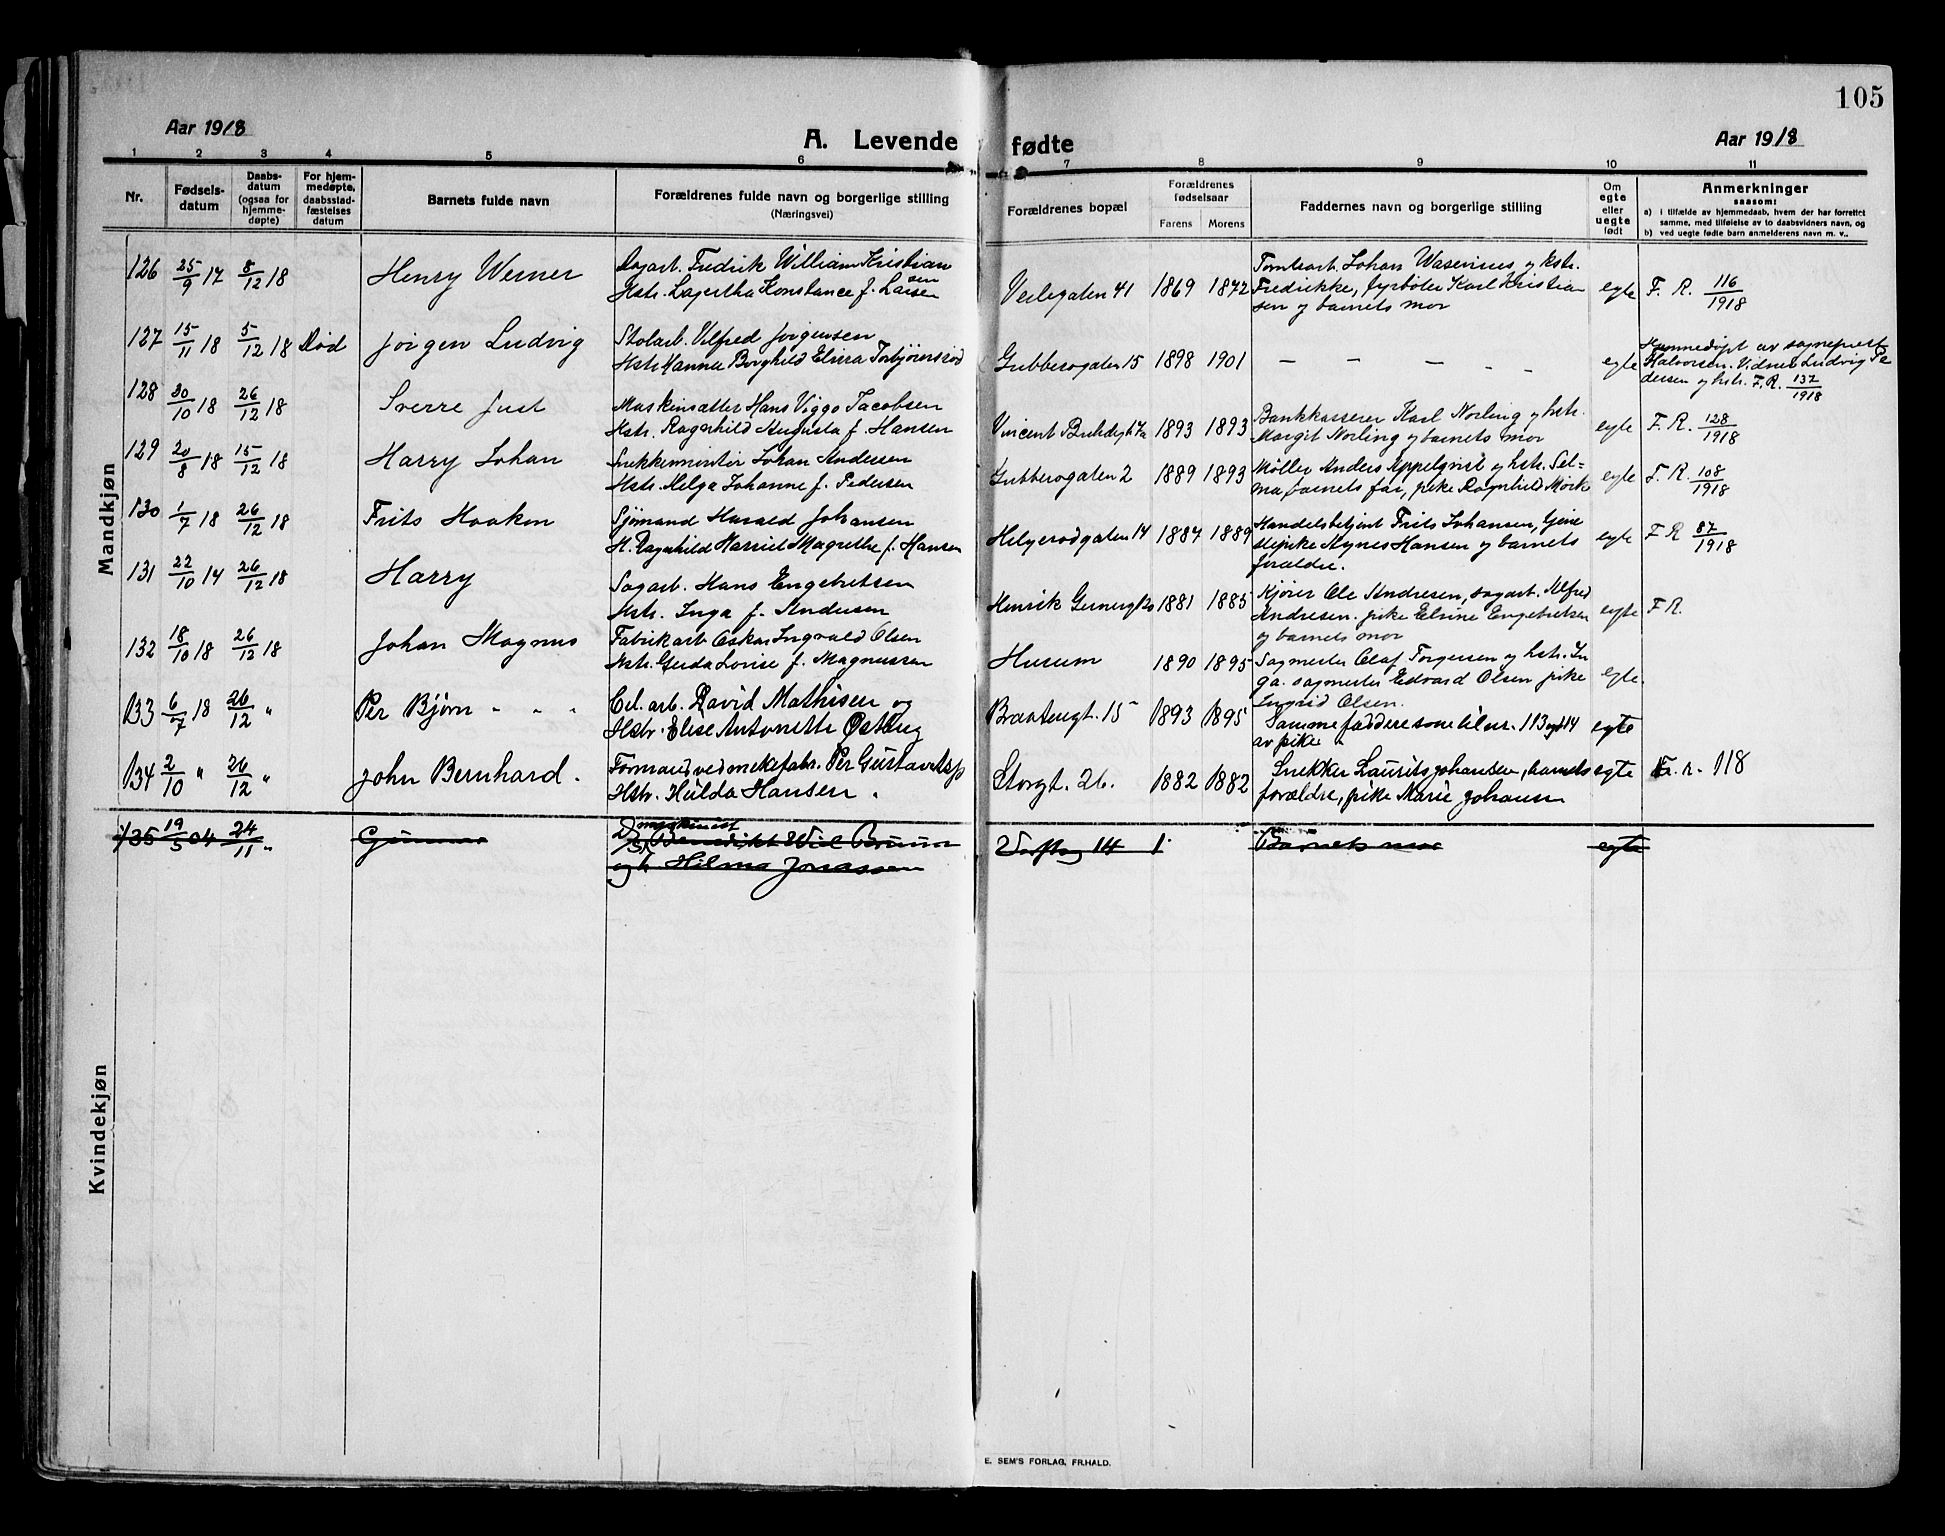 105
Aar 1918
A. Levende fødte
Aar 1918
1 2 3 4 5 6 7 8 9 10 11
Nr.
Fødsels-
datum
Daabs-
datum
(ogsaa for
hjemme-
døpte)
For hjem-
medøpte,
daabsstad-
fæstelses
datum
Barnets fulde navn
Forældrenes fulde navn og borgerlige stilling
(Næringsvei)
Forældrenes bopæl
Forældrenes
fødselsaar
Farens Morens
Faddernes navn og borgerlige stilling
Om
egte
eller
uegte
født
Anmerkninger
saasom:
a) i tilfælde av hjemmedaab, hvem der har forrettet
samme, med tilføielse av to daabsvidners navn, og
b) ved uegte fødte barn anmelderens navn m. v..
Mandkjøn
126 25/9 17 8/12 18 Henry Werner
Dagarb. Fredrik William Kristian
sen
Hstr. Lagertha Konstance f. Larsen
41 1869 1872
Johan Wasenius og hstr.
Fredrikke, fyrbøter Karl Kristian
sen og barnets mor
egte F. R. 116/1918
127 15/11 18 5/12 18 Død Jørgen Ludvig
Vilfred Jørgensen
Hstr. Hanna Borghild
15 1898 1901 — — - - egte
Hjemmedøpt av sogneprest
Halvorsen. Vidner Ludvig Pe
dersen og hstr. F. R. 137/1918
128 30/10 18 26/12 18 Sverre Just
Hans Viggo Jacobsen
Hstr. Ragnhild Augusta f. Hansen
Vincent 1893 1893
Bankkasserer Karl Norling og hstr.
Margit Norling og barnets mor
egte F. R. 128/1918
129 20/8 18 15/12 18 Harry Johan
Johan Andersen
Hstr. Helga Johanne f. Pedersen
2 1889 1893
Møller Anders Appelqvist og hstr. Sel=
ma, barnets far, pike Ragnhild Mørk
egte F. R. 108/1918
130 1/7 18 26/12 18 Frits Haakon
Sjømand Harald Johansen
H. Ragnhild Harriet Magrethe f. Hansen
14 1887 1889
Handelsbetjent Frits Johansen, tjene
stepike Agnes Hansen og barnets
forældre.
egte F R 87/1918
131 22/10 14 26/12 18 Harry
Sagarb. Hans Engebretsen
Hstr. Inga f. Andersen
Henrik 1881 1885
Kjører Ole Andresen, sagarb. Alfred
Andresen. pike Elvine Engebretsen
og barnets mor
egte F R.
132 18/10 18 26/12 18 Johan Magnus
Fabrikarb. Oskar Ingvald Olsen
Hstr. Gerda Lovise f. Magnussen
Husum 1890 1895
Sagmester Olaf Torgersen og hstr. In
ga. sagmester Edvard Olsen pike
Ingrid Olsen.
egte.
133 6/7 18 26/12 " Per Bjørn - - -
Cel. arb. David Mathisen og
Hstr. Elise Antonette Østbug
15 1893 1895
Samme faddere som til nr. 113 og 114
av pike
egte
134 2/10 " 26/12 " John Bernhard.
Formand ved Per Gustav
Hstr. Hulda Hansen.
Storgt. 26. 1882 1882
Snekker Laurits Johansen, barnets
forældre, pike Marie Johansen
egte F. r. 118
135 19/5 04 24/11 " Gunnar
maskinist
Benedikt Bruun
og h. Hilma Jonassen
14 1
Barnets mor
egte
Kvindekjøn
E. SEM'S FORLAG, FR.HALD.